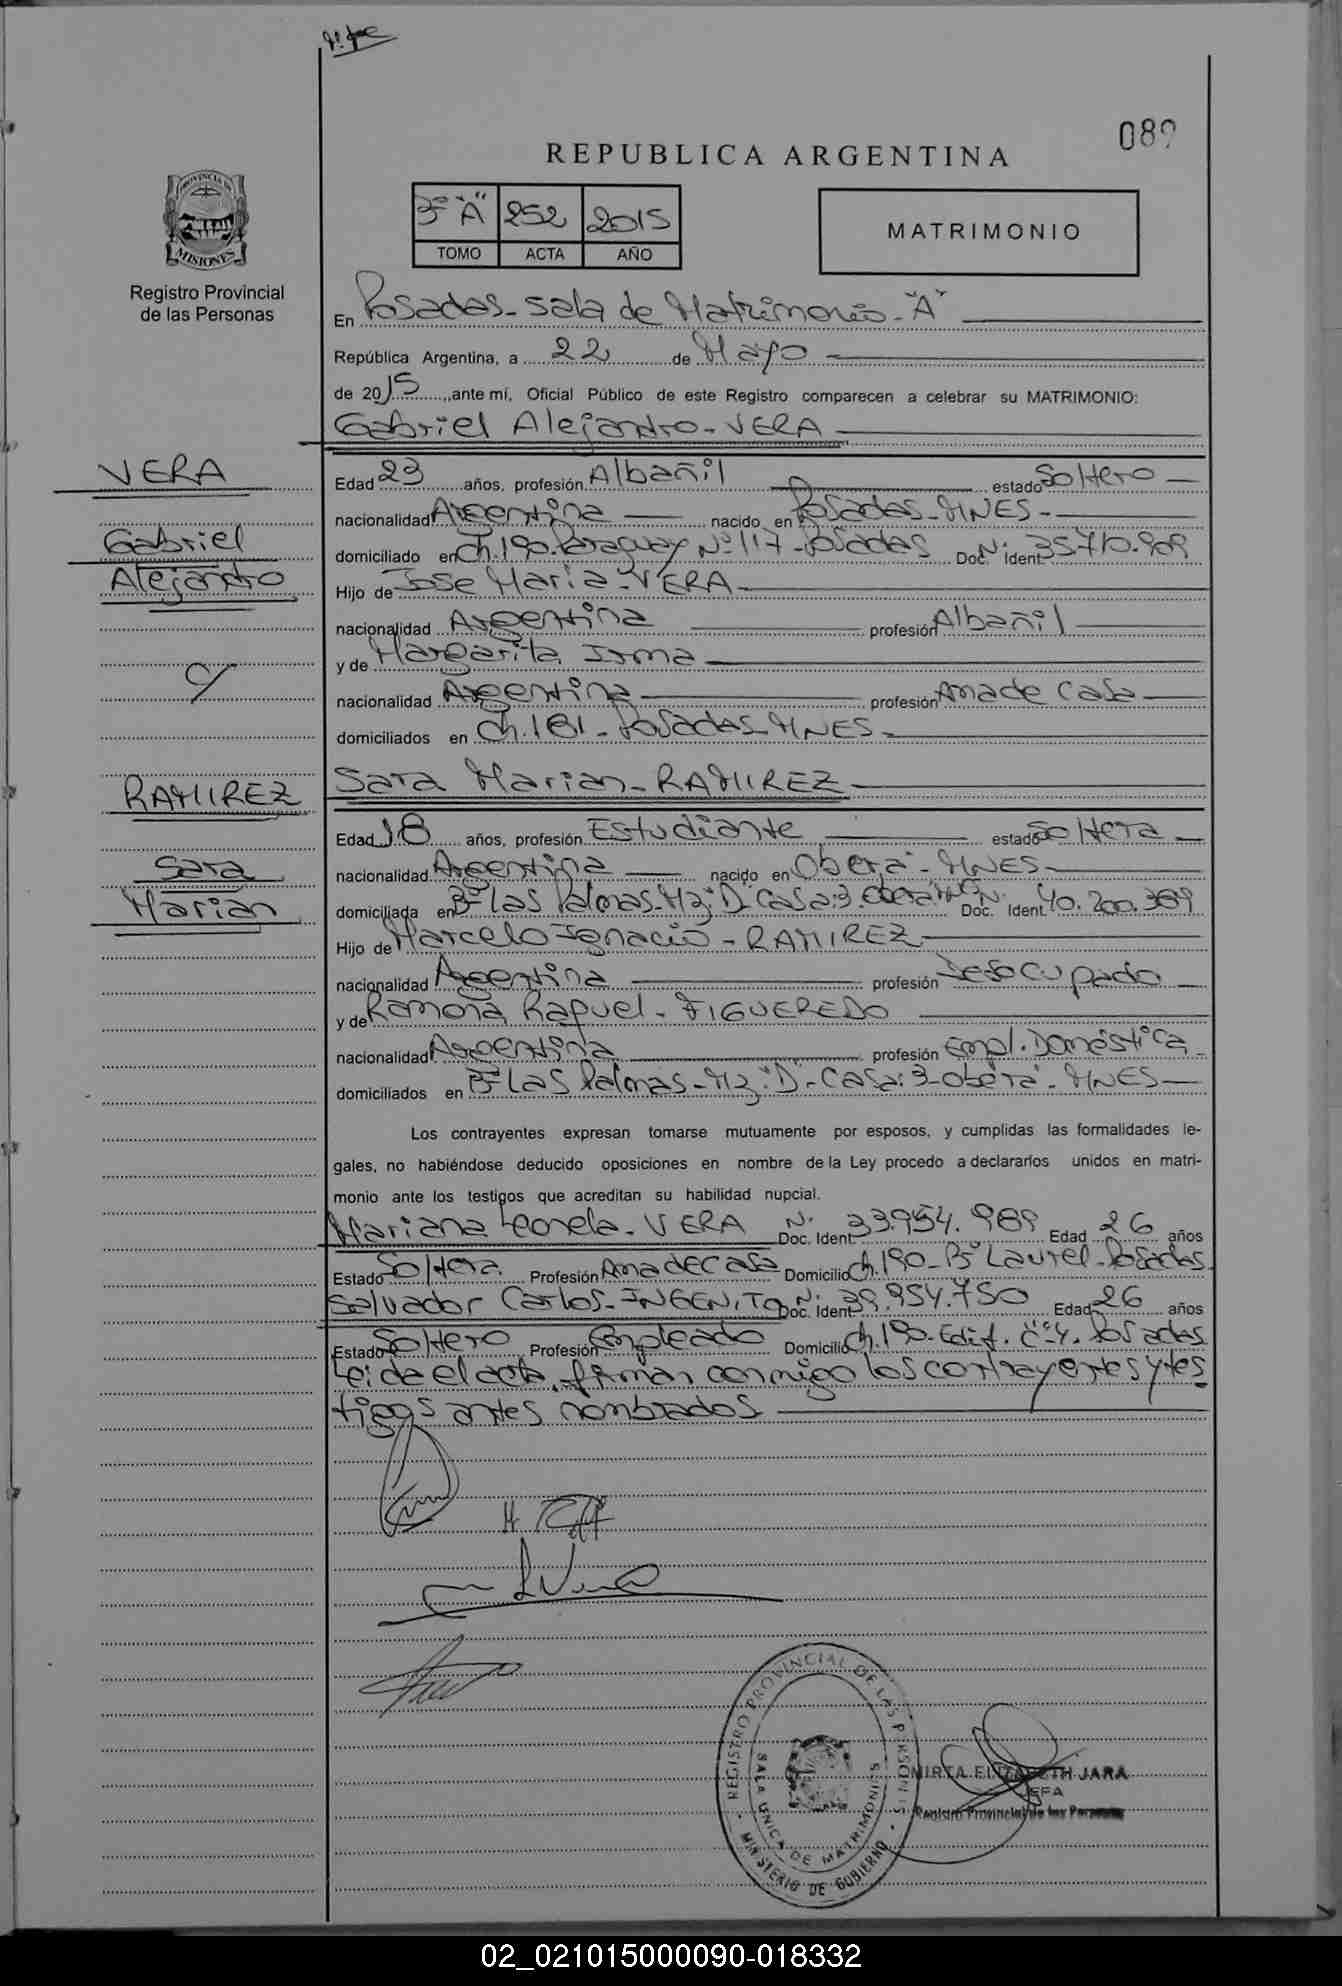 089
REPUBLICA ARGENTINA
3º "A" 252 2015
TOMO ACTA AÑO
MATRIMONIO
PROVINCIA DE
MISIONES
Registro Provincial
de las Personas
En Posadas - Sala de Matrimonio - "A"
República Argentina, a 22 de Mayo
de 2015, ante mí, Oficial Público de este Registro comparecen a celebrar su MATRIMONIO:
Gabriel Alejandro - VERA
VERA
Gabriel
Alejandro
c/
RAMIREZ
Sara
Marian
Edad 23 años, profesión Albañil estado Soltero
nacionalidad Argentina nacido en Posadas - MNES -
domiciliado en Ch. 190. Paraguay Nº 117 - Posadas Doc. Ident. Nº 35.710.909
Hijo de Jose Maria - VERA
nacionalidad Argentina profesión Albañil
y de Margarita Irma
nacionalidad Argentina profesión Ama de Casa
domiciliados en Ch. 181 - Posadas - MNES -
Sara Marian - RAMIREZ
Edad 18 años, profesión Estudiante estado Soltera
nacionalidad Argentina nacido en Oberá - MNES
domiciliada en Bº Las Palmas - Mz: "D" - Casa: 3. Oberá Doc. Ident. Nº 40.200.389
Hijo de Marcelo Ignacio - RAMIREZ
nacionalidad Argentina profesión Desocupado
y de Ramona Raquel - FIGUEREDO
nacionalidad Argentina profesión Empl. Doméstica
domiciliados en Bº Las Palmas - Mz: "D" - Casa: 3 - Oberá - MNES
Los contrayentes expresan tomarse mutuamente por esposos, y cumplidas las formalidades le-
gales, no habiéndose deducido oposiciones en nombre de la Ley procedo a declararlos unidos en matri-
monio ante los testigos que acreditan su habilidad nupcial.
Mariana Leonela - VERA Doc. Ident. Nº 33.954.989 Edad 26 años
Estado Soltera Profesión Ama de Casa Domicilio Ch. 190 - Bº Laurel - Posadas
Salvador Carlos - INGENITO Doc. Ident. Nº 39.954.750 Edad 26 años
Estado Soltero Profesión Empleado Domicilio Ch. 190. Edif. C:4. Posadas
Leida el acta, firman conmigo los contrayentes y tes
tigos antes nombrados
REGISTRO PROVINCIAL DE LAS PERSONAS
SALA UNICA DE MATRIMONIOS
MINISTERIO DE GOBIERNO
MIRTA ELIZABETH JARA
JEFA
Registro Provincial de las Personas
02_021015000090-018332